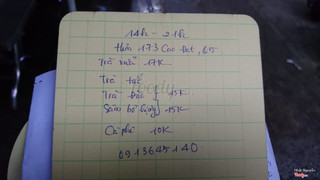 14h - 21h
Hẻm 173 Cao Đạt, Q5
Trà sữa 17K
Trà tắc
Trà đào 15K
Sâm bổ lượng 15K
Cà phê 10K
0913645140